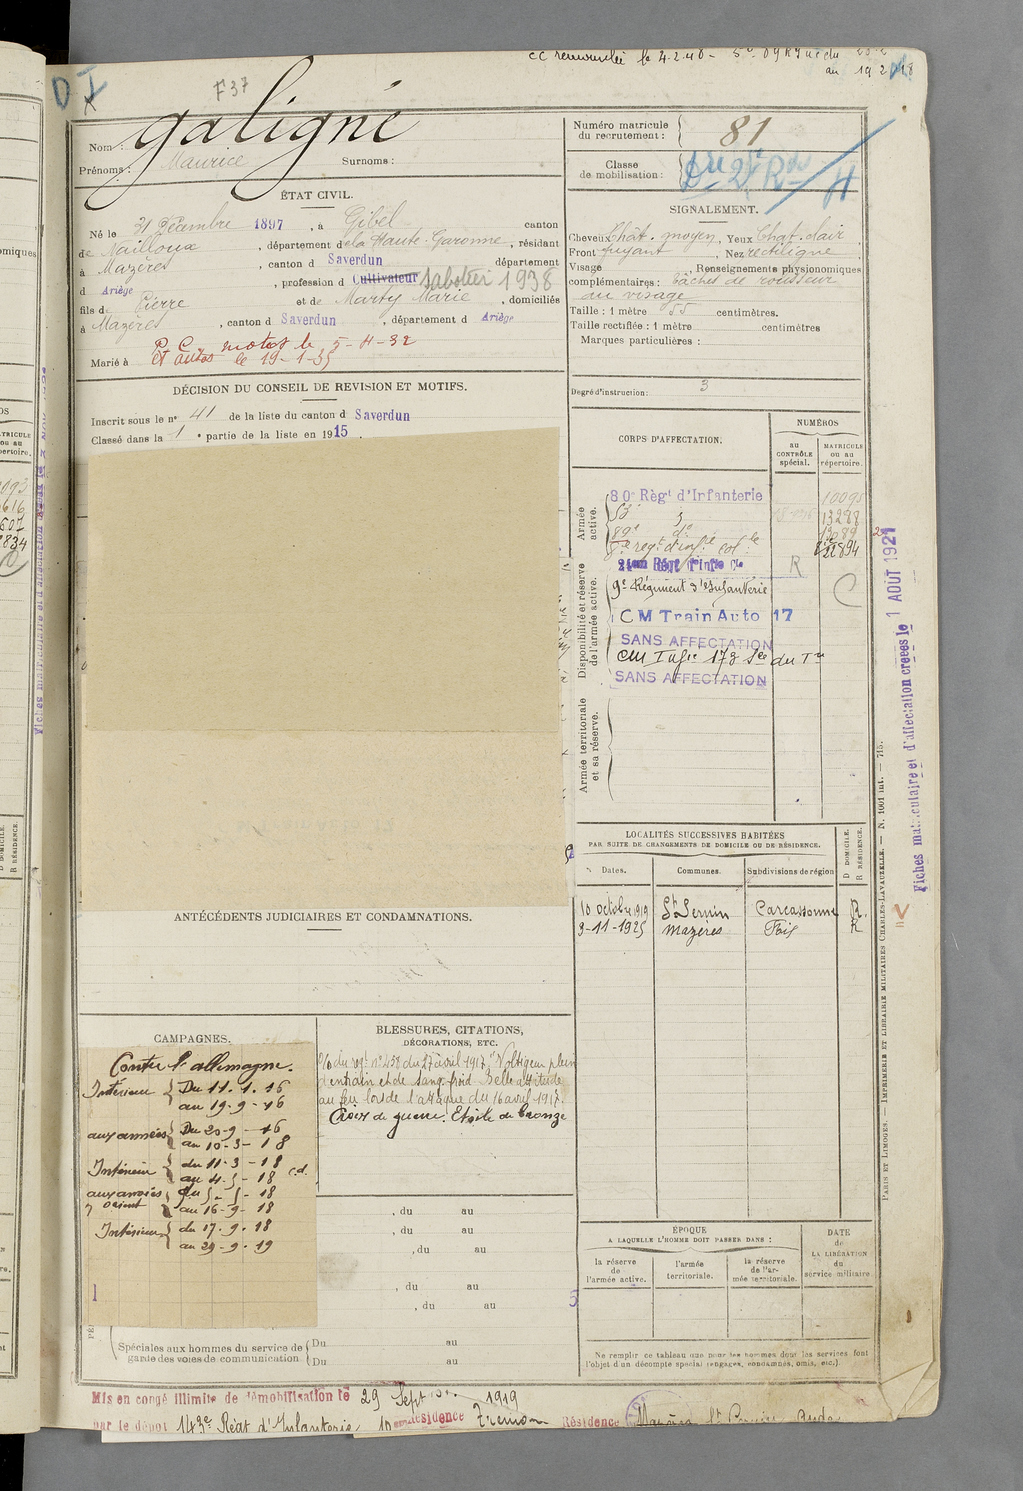 cc renouvelée le 4.2.40 -
D I
F37
Nom : galigné
Prénoms : Maurice Surnoms :
Numéro matricule du recrutement : 81
Classe de mobilisation :
ÉTAT CIVIL.
Né le 31 Décembre 1897, à Gibel canton
de Nailloux, département de la Haute-Garonne, résidant
à Mazères, canton d Saverdun département
d Ariège, profession d Cultivateur Sabotier 1938
fils de Pierre et de Marty Marie, domiciliés
à Mazères, canton d Saverdun, département d Ariège
P. C. motos le 5-4-32
Marié à et autos le 19-1-35
SIGNALEMENT.
Cheveux Chât. moyen, Yeux Chat. clair
Front fuyant, Nez rectiligne
Visage , Renseignements physionomiques
complémentaires : tâches de rousseur
au visage
Taille : 1 mètre 55 centimètres.
Taille rectifiée : 1 mètre centimètres
Marques particulières :
Degré d'instruction : 3
DÉCISION DU CONSEIL DE REVISION ET MOTIFS.
Inscrit sous le n° 41 de la liste du canton d Saverdun
Classé dans la 1e partie de la liste en 1915.
CORPS D'AFFECTATION.
NUMÉROS
au CONTRÔLE spécial.
MATRICULE ou au répertoire.
Armée active.
80e Régt d'Infanterie 10095
53 13298
89e do 13089
8e regt d'inf. col. 22894
Disponibilité et réserve de l'armée active.
R
9e Régiment d'Infanterie C
CM Train Auto 17
SANS AFFECTATION
CM Infie 173
SANS AFFECTATION
Armée territoriale et sa réserve.
Fiches matriculaire et d'affectation créées le 1 AOUT 1921
LOCALITÉS SUCCESSIVES HABITÉES
PAR SUITE DE CHANGEMENTS DE DOMICILE OU DE RÉSIDENCE.
Dates. Communes. Subdivisions de région
D DOMICILE.
R RÉSIDENCE.
10 octobre 1919 St Sernin Carcassonne R.
9-11-1925 Mazères Foix R
ANTÉCÉDENTS JUDICIAIRES ET CONDAMNATIONS.
CAMPAGNES.
Contre l'allemagne.
Intérieur { Du 11.1.16
au 19-9-16
aux armées { Du 20-9-16
au 10-3-18
Intérieur { du 11-3-18
au 4-5-18 c.d.
aux armées du 5-5-18
d'orient au 16-9-18
Intérieur { du 17.9.18
au 29-9-19
1
BLESSURES, CITATIONS,
DÉCORATIONS, ETC.
O/o du rgt n° 438 du 27 avril 1917, "Voltigeur plein
d'entrain et de sang froid. Belle attitude
au feu lors de l'attaque du 16 avril 1917.
Croix de guerre. Etoile de bronze
, du au
, du au
, du au
, du au
, du au
5
Spéciales aux hommes du service de garde des voies de communication { Du au
Du au
ÉPOQUE
A LAQUELLE L'HOMME DOIT PASSER DANS :
la réserve de l'armée active.
l'armée territoriale.
la réserve de l'armée territoriale.
DATE de LA LIBÉRATION du service militaire.
Ne remplir ce tableau que pour les hommes dont les services font
l'objet d'un décompte spécial (engagés, condamnés, omis, etc.)
PARIS ET LIMOGES. — IMPRIMERIE ET LIBRAIRIE MILITAIRES CHARLES-LAVAUZELLE. — N. 1001 int. — 715.
Mis en congé illimité de démobilisation le 29 Septbre 1919
par le dépôt 143e Régt d'Infanterie Résidence